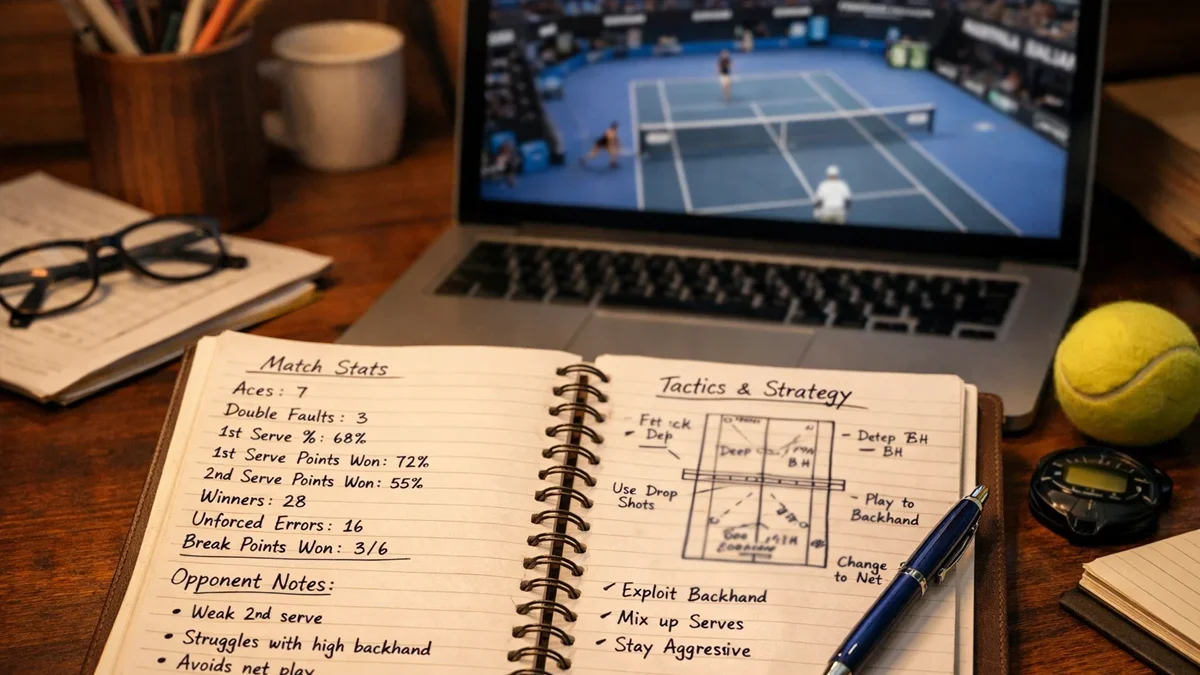 Match Stats
Aces : 7
Double Faults : 3
1st Serve % : 68%
1st Serve Points Won : 72%
2nd Serve Points Won : 55%
Winners : 28
Unforced Errors : 16
Break Points Won : 3/6
Opponent Notes:
• Weak 2nd serve
• Struggles with high backhand
• Avoids net play
Tactics & Strategy
Deep
BH
- Detep BH
- BH
Use Drop
Shots
- Play to
Backhand
Change
to Net
✓ Exploit Backhand
✓ Mix up Serves
✓ Stay Aggressive